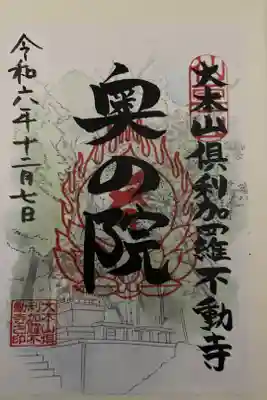 大本山倶利加羅不動寺
奥の院
令和六年十二月七日
大本山倶
利加羅不
動寺之印